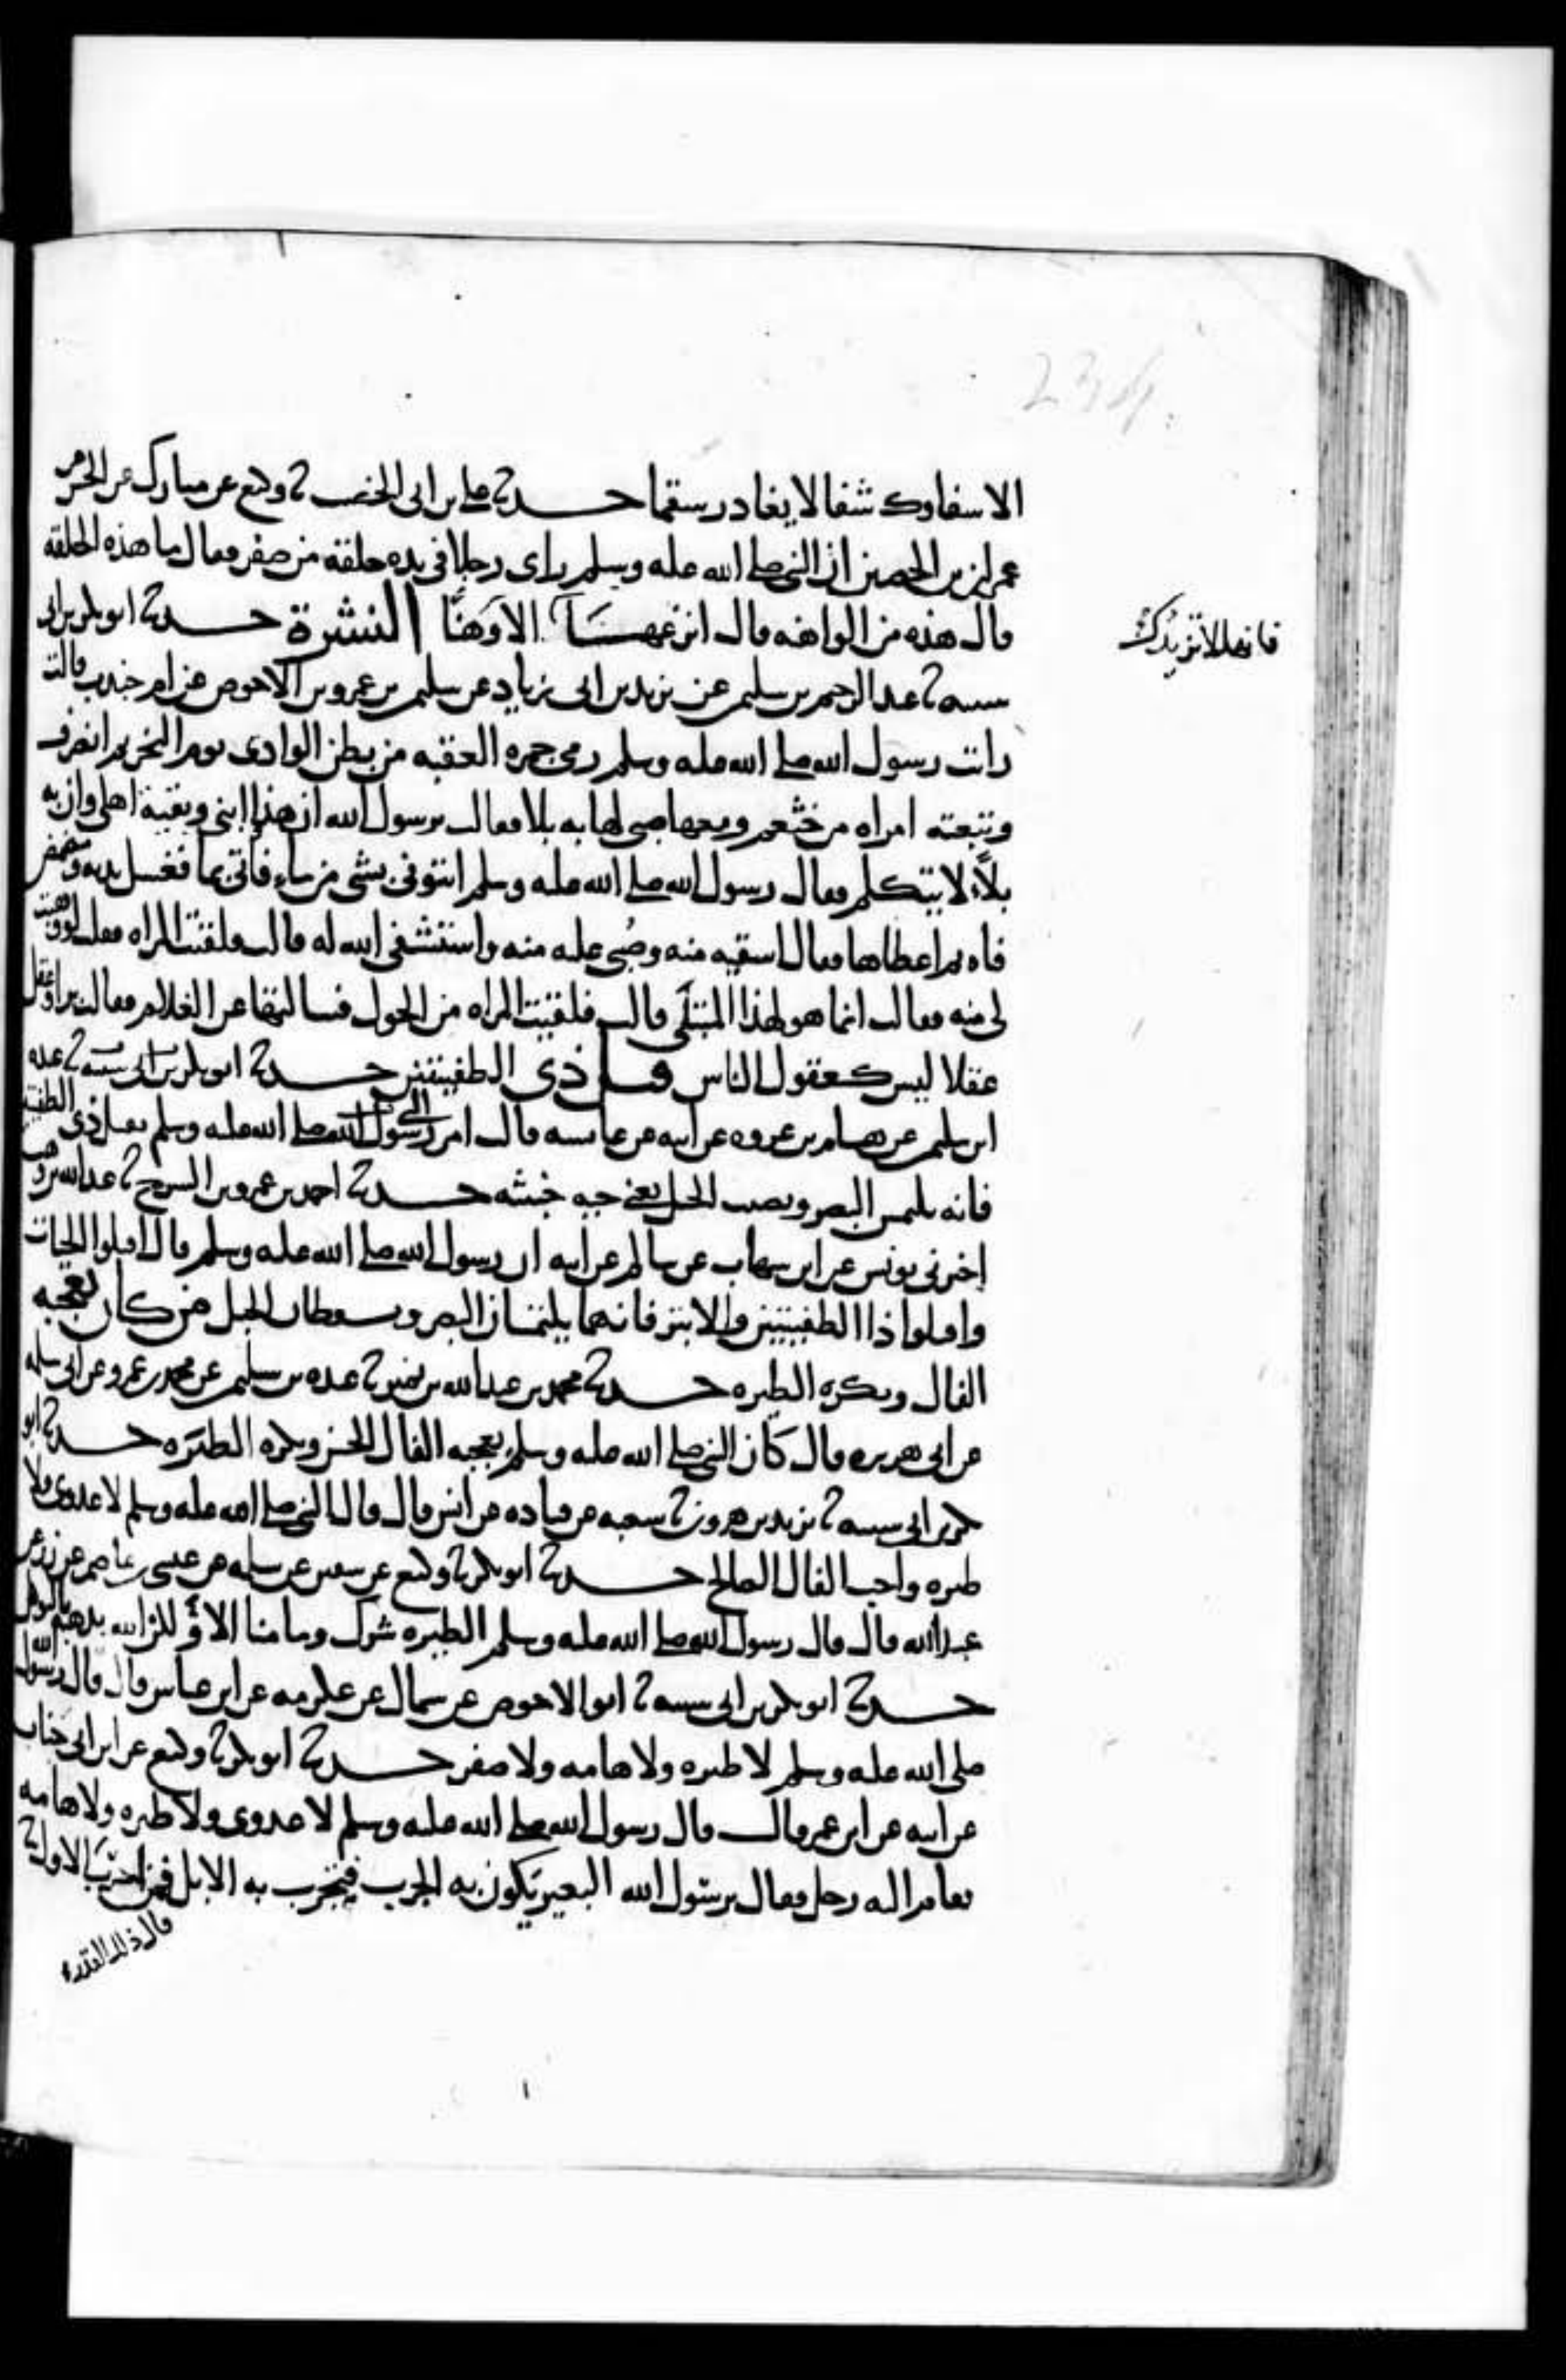 الا شفاوك شفا لا يغادر سقما حدثنا علي بن ابي الخصيب ثنا وكيع عن مبارك عن الحسن عن
عمران بن الحصين ان النبي صلى الله عليه وسلم راى رجلا في يده حلقة من صفر فقال ما هذه الحلقة
قال هذه من الواهنه قال انزعها الا وهنا النشرة حدثنا ابو بكر بن ابي
فانها لا تزيدك
شيبه ثنا عبد الرحيم بن سليم عن يزيد بن ابي زياد عن سليم بن عمرو بن الاحوص عن ام جندب قالت
رايت رسول الله صلى الله عليه وسلم رمى جمرة العقبه من بطن الوادي يوم النحر ثم انصرف
وتبعته امراه من خثعم ومعها صبي لها به بلا فقالت يرسول الله ان هذا ابني وبقية اهلي وان به
بلاء لا يتكلم فقال رسول الله صلى الله عليه وسلم ائتوني بشي من ماء فاتي بما فغسل يديه ومضمض
فاه ثم اعطاها فقال اسقيه منه وصبي عليه منه واستشفي الله له قالت فلقيت المراه فقلت لو وهبت
لي منه فقالت انما هو لهذا المبتلى قالت فلقيت المراه من الحول فسالتها عن الغلام فقالت برا وعقل
عقلا ليس كعقول الناس قتل ذي الطفيتين حدثنا ابو بكر بن ابي شيبه ثنا عبده
ابن سليم عن هشام بن عروه عن ابيه عن عائشه قالت امر رسول الله صلى الله عليه وسلم بقتل ذي الطفيتين
فانه يلتمس البصر ويصيب الحبل يعني حيه خبيثه حدثنا احمد بن عمرو بن السرح ثنا عبد الله بن وهب
اخبرني يونس عن ابن شهاب عن سالم عن ابيه ان رسول الله صلى الله عليه وسلم قال اقتلوا الحيات
واقتلوا ذا الطفيتين والابتر فانهما يلتمسان البصر ويسقطان الحبل من كان يعجبه
الفال ويكره الطيره حدثنا محمد بن عبد الله بن نمير ثنا عبده بن سليم عن محمد بن عمرو عن ابي سلمه
عن ابي هريره قال كان النبي صلى الله عليه وسلم يعجبه الفال الحسن ويكره الطيره حدثنا ابو
بكر بن ابي شيبه ثنا يزيد بن هرون ثنا شعبه عن قتاده عن انس قال قال النبي صلى الله عليه وسلم لا عدوى ولا
طيره واحب الفال الصالح حدثنا ابو بكر ثنا وكيع عن سفين عن سلمه عن عيسى بن عاصم عن زر عن
عبد الله قال قال رسول الله صلى الله عليه وسلم الطيره شرك وما منا الا ولكن الله يذهبه بالتوكل
حدثنا ابو بكر بن ابي شيبه ثنا ابو الاحوص عن سماك عن عكرمه عن ابن عباس قال قال رسول الله
صلى الله عليه وسلم لا طيره ولا هامه ولا صفر حدثنا ابو بكر ثنا وكيع عن ابن ابي جناب
عن ابيه عن ابن عمر قال قال رسول الله صلى الله عليه وسلم لا عدوى ولا طيره ولا هامه
فقام اليه رجل فقال يرسول الله البعير يكون به الجرب فتجرب به الابل فمن اجرب الاول
قال ذلك القدر